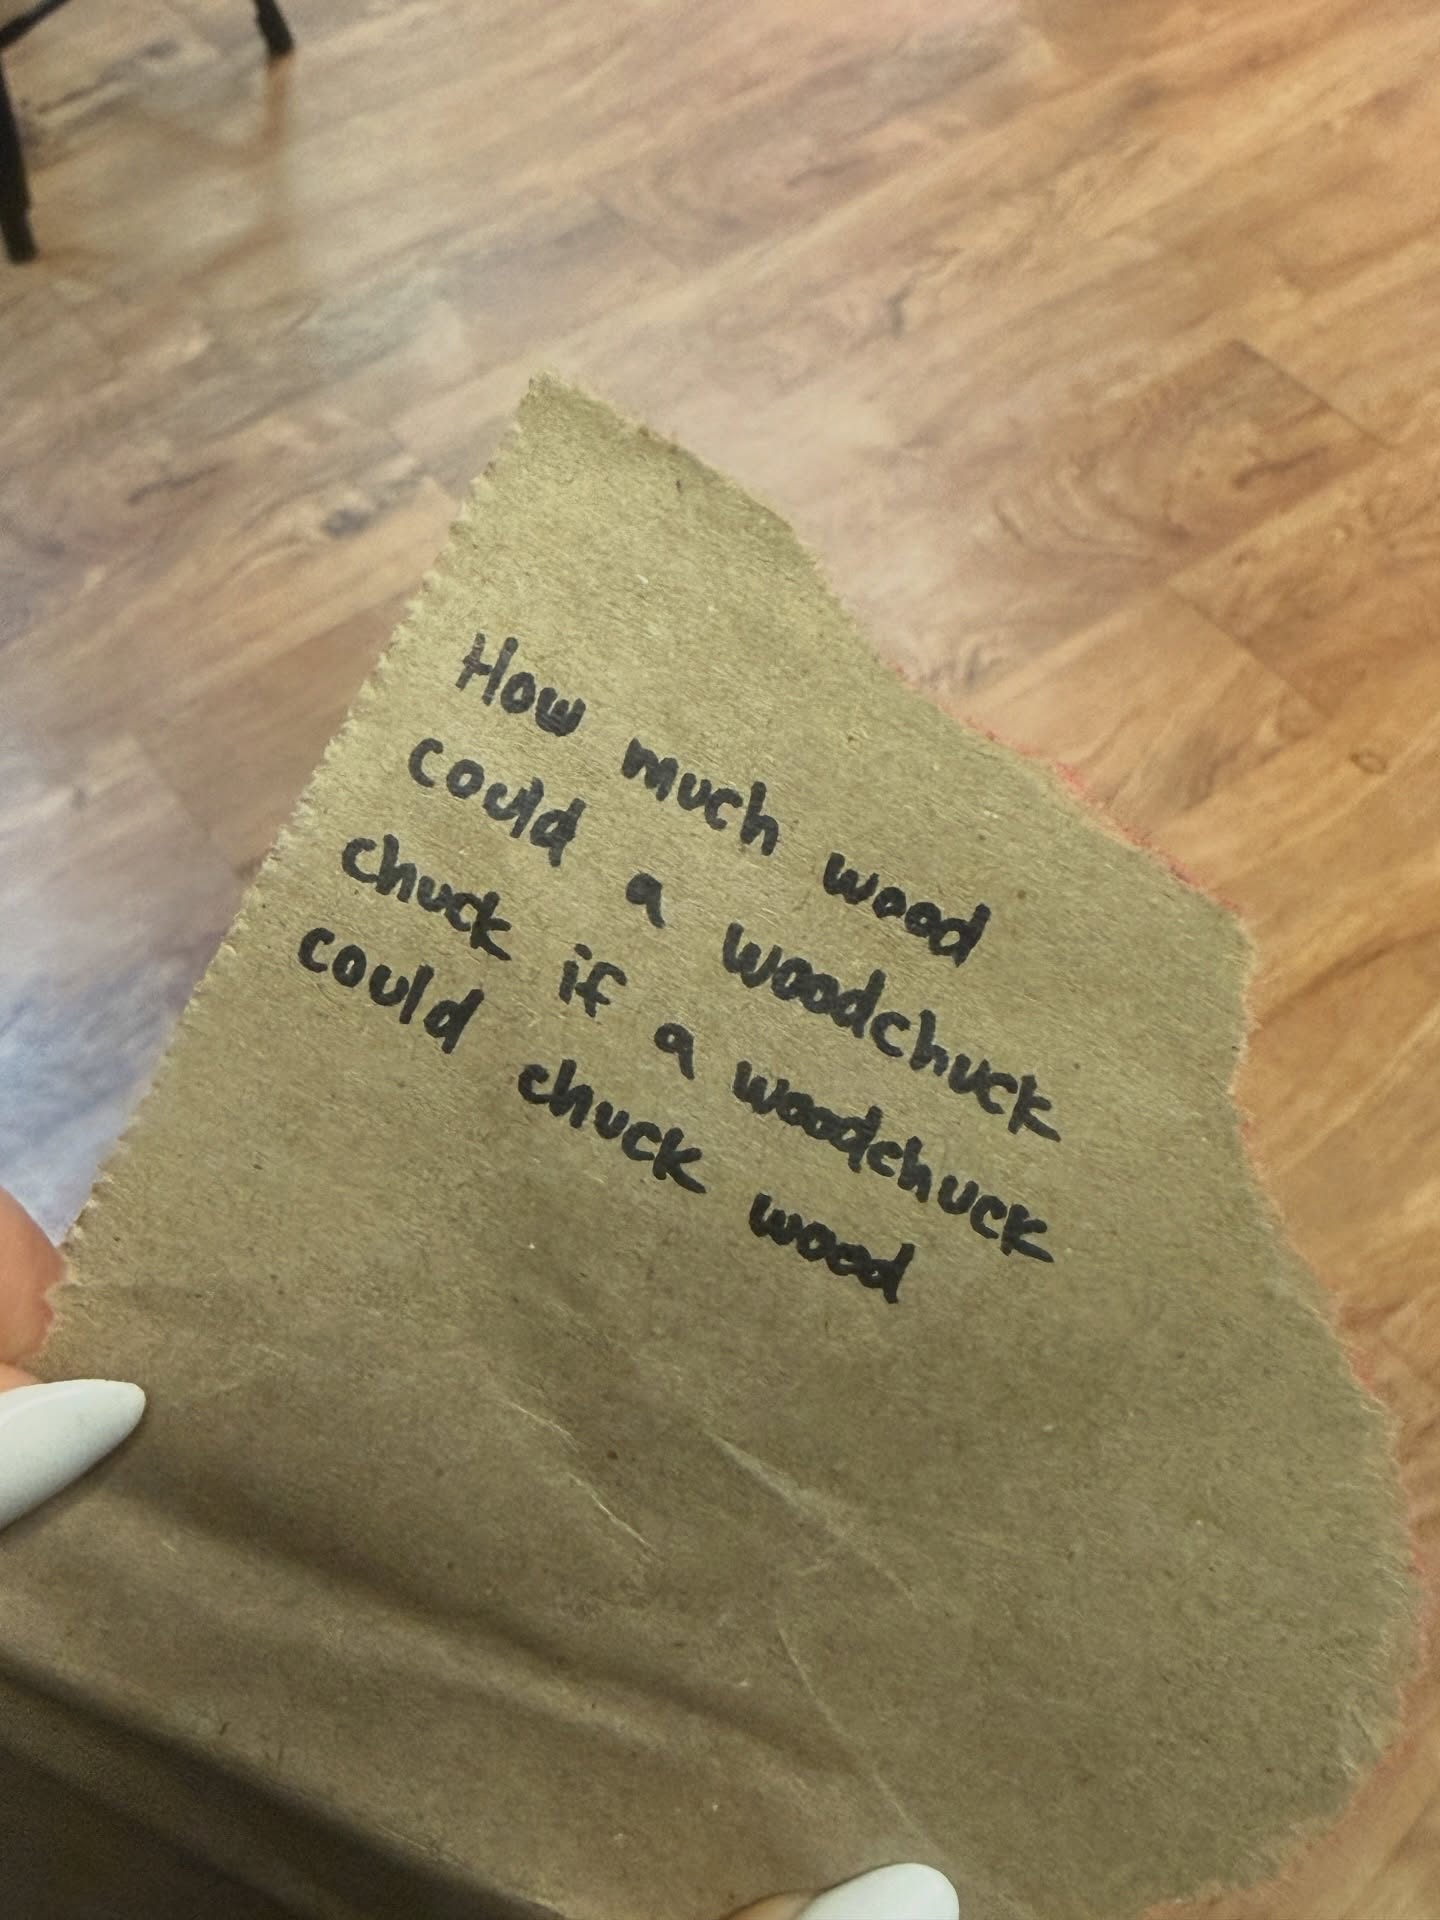 How much wood
could a woodchuck
chuck if a woodchuck
could chuck wood